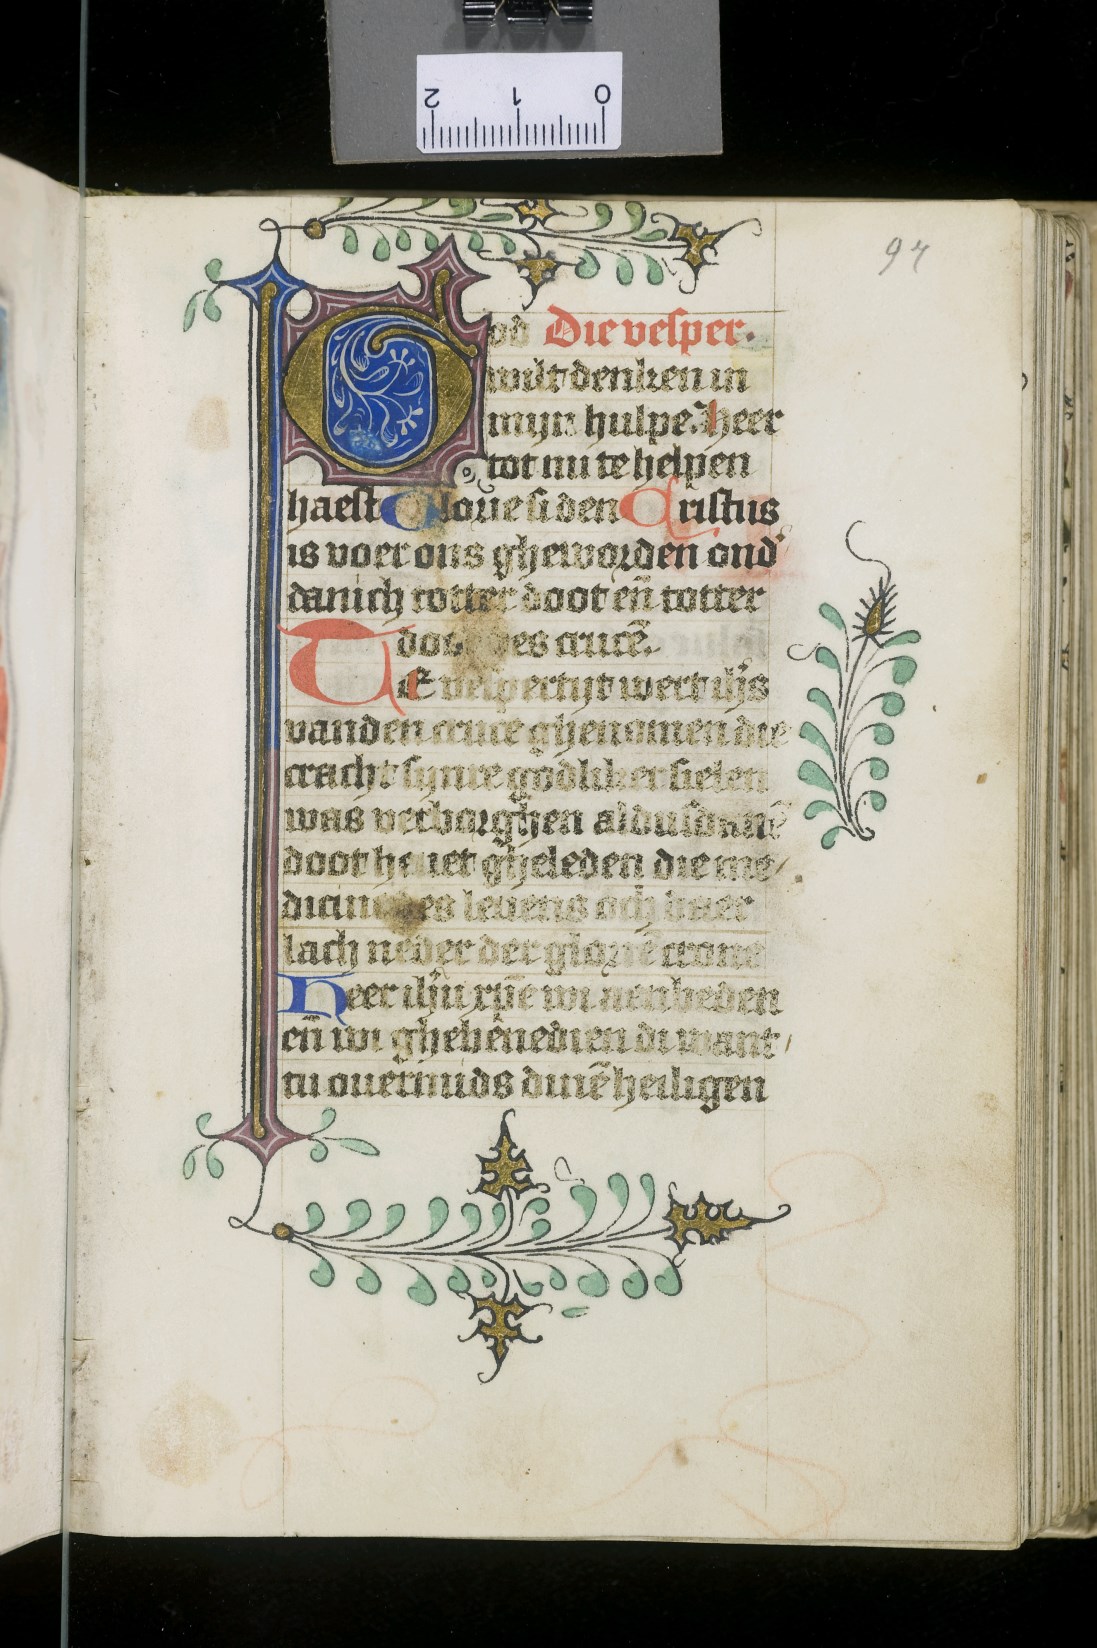 2 1 0
97
God Die vesper.
wilt denken in
mijn hulpe. Heer
tot mi te helpen
haest Gloue si den Cristus
is voer ons gheworden ond'
danich totter doot en̄ totter
doot des crucē.
Te vespertijt wert ih̄s
vanden cruce ghenomen die
cracht sijnre godliker sielen
was verborghen aldusdanē
doot heuet gheleden die me
dicine des leuens och waer
lach neder der gloriē crone
Heer ih̄u xp̄e wi aenbeden
en̄ wi ghebēnedien di want
tu ouermids dinē heiligen